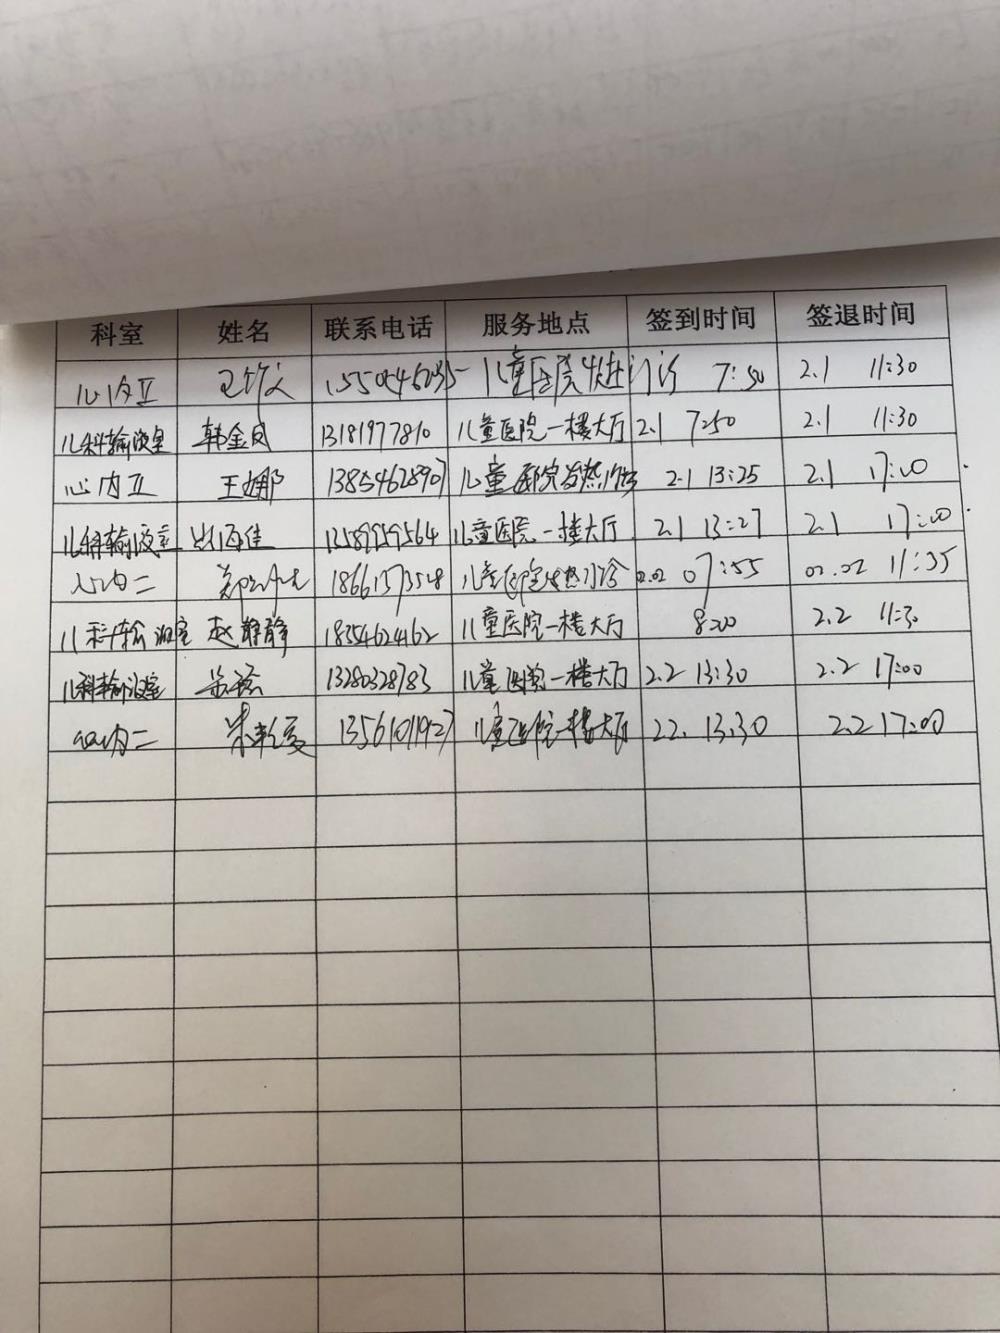 科室 姓名 联系电话 服务地点 签到时间 签退时间
心内 儿童医院 门诊 7:50 2.1 11:30
儿科输液室 韩金凤 13181977810 儿童医院一楼大厅 2.1 7:50 2.1 11:30
心内 王娜 13854628907 儿童医院发热门诊 2.1 13:25 2.1 17:00
儿科输液室 13589959564 儿童医院一楼大厅 2.1 13:27 2.1 17:00
心内二 18661573548 儿童医院发热门诊 02.02 07:55 02.02 11:35
儿科输液室 赵静静 18354624162 儿童医院一楼大厅 8:00 2.2 11:30
儿科输液室 13280328783 儿童医院一楼大厅 2.2 13:30 2.2 17:00
心内二 儿童医院一楼大厅 2.2. 13:30 2.2 17:00